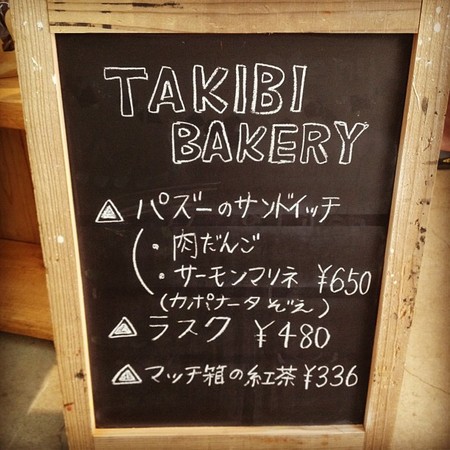 TAKIBI
BAKERY
パズーのサンドイッチ
・肉だんご
・サーモンマリネ ¥650
(カポナータぞえ)
ラスク ¥480
マッチ箱の紅茶 ¥336